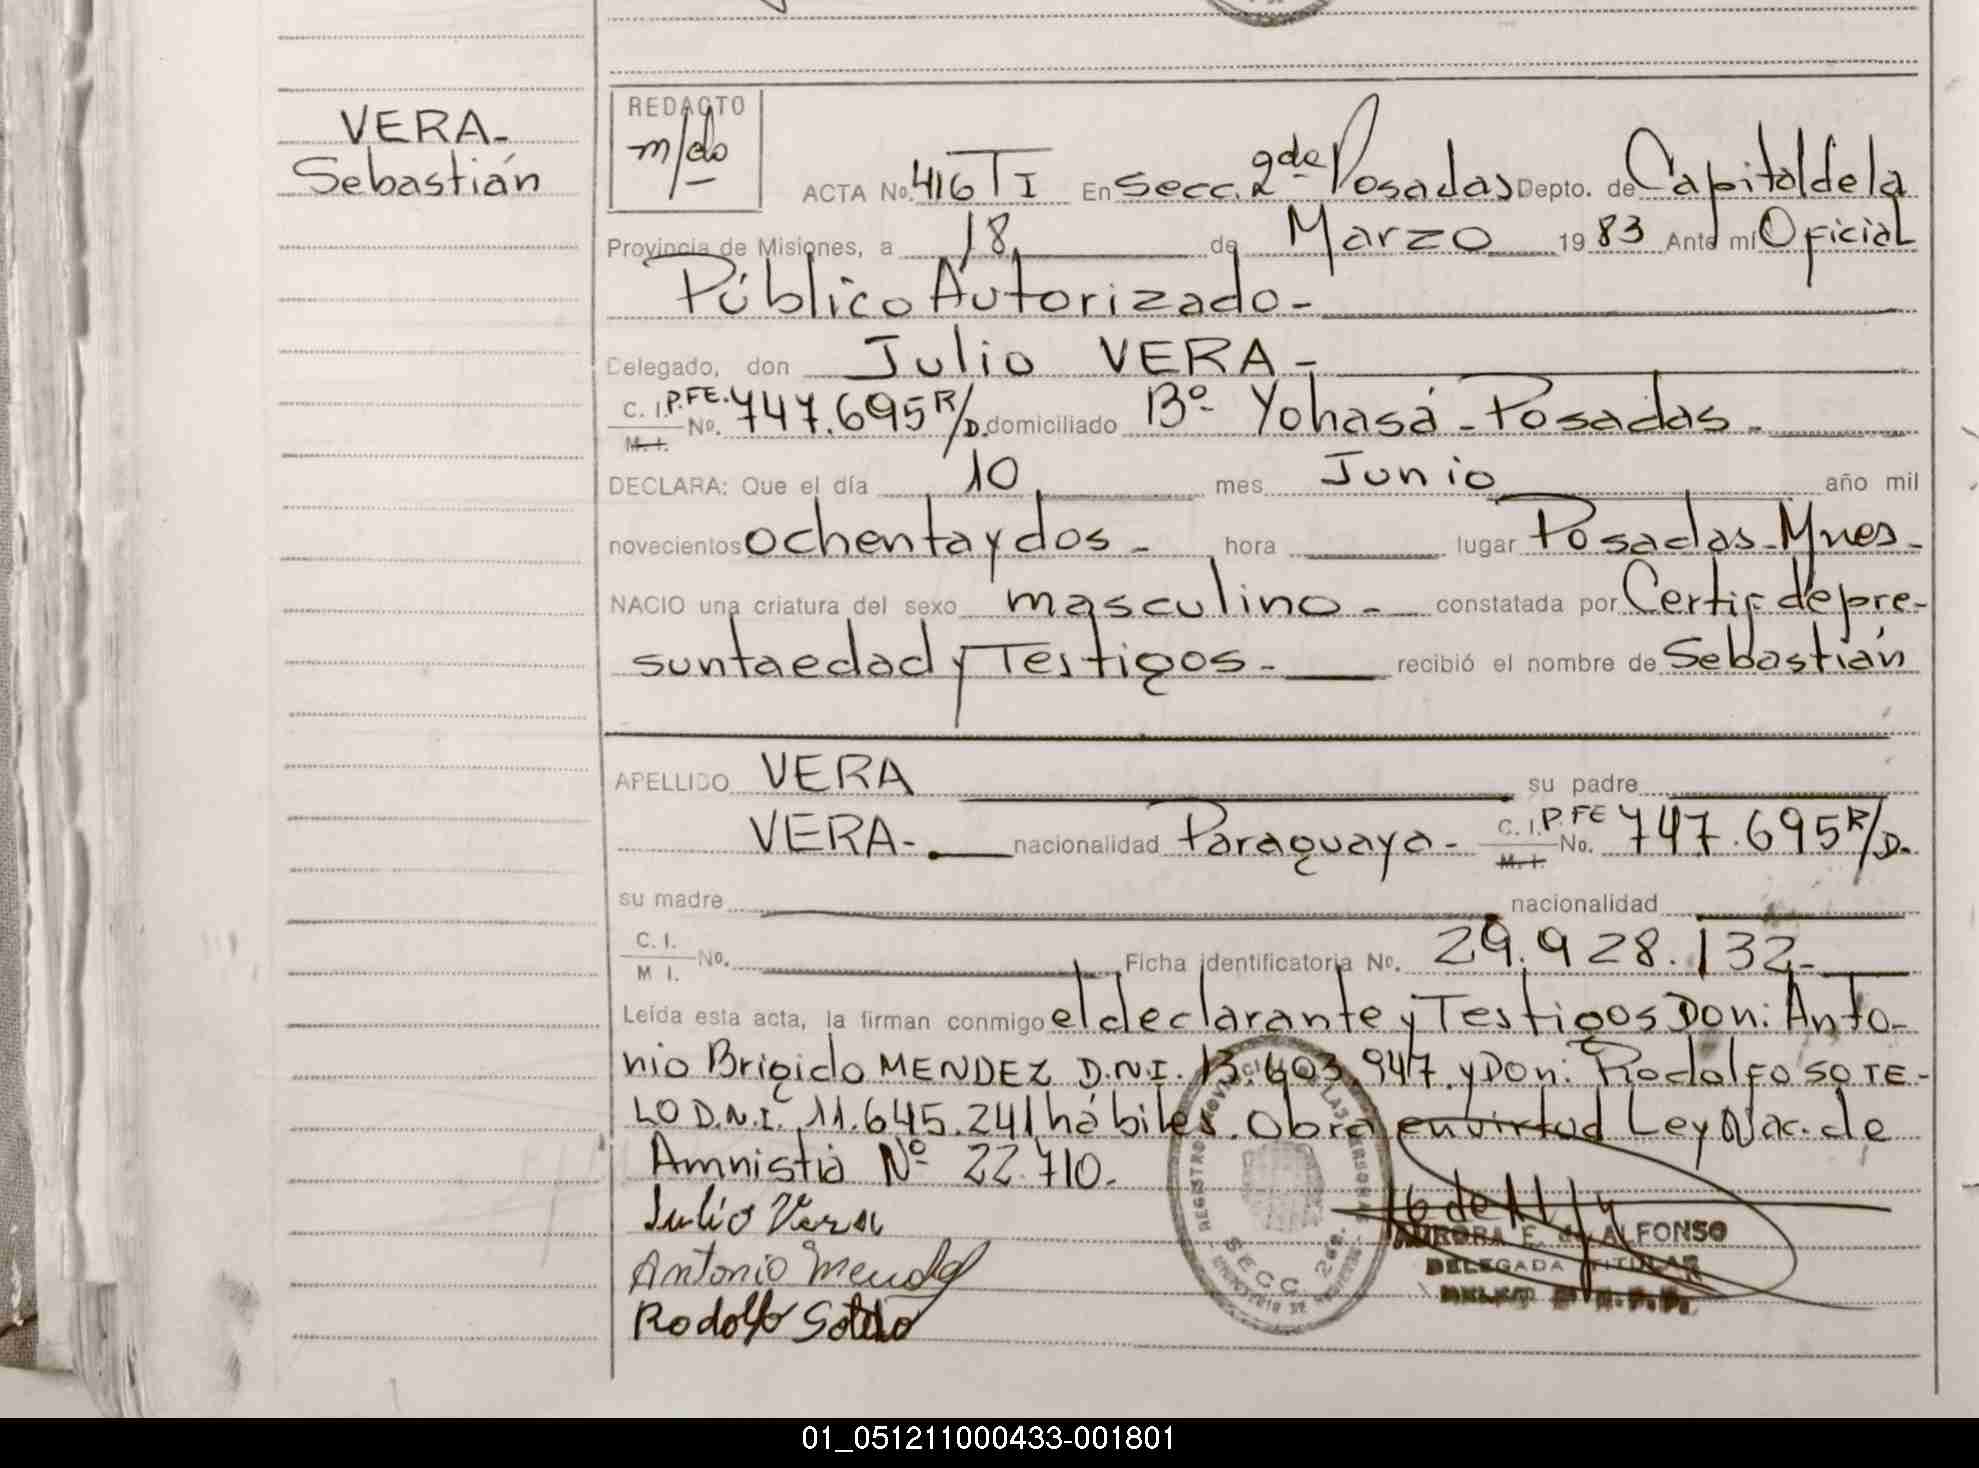 VERA-
Sebastián
REDACTO
m/do
ACTA No. 416 TI En Secc. 2da Posadas Depto. de Capital de la
Provincia de Misiones, a 18 de Marzo 1983 Ante mí Oficial
Público Autorizado-
Delegado, don Julio VERA-
C. I. P.FE. No. 747.695 R/D. domiciliado Bº Yohasá - Posadas -
M. I.
DECLARA: Que el día 10 mes Junio año mil
novecientos ochenta y dos - hora lugar Posadas - Mnes -
NACIO una criatura del sexo masculino - constatada por Certif de pre-
sunta edad y Testigos - recibió el nombre de Sebastián
APELLIDO VERA su padre
VERA- nacionalidad Paraguaya - C. I. P.FE No. 747.695 R/D.
M. I.
su madre nacionalidad
C. I. No. Ficha identificatoria No. 29.928.132-
M I.
Leída esta acta, la firman conmigo el declarante y Testigos Don: Anto-
nio Brigido MENDEZ D.N.I. 13.603.947. y Don: Rodolfo SOTE-
LO D.N.I. 11.645.241 hábiles. Obra en virtud Ley Nac. de
Amnistia Nº 22.710.-
Julio Vera
Antonio Mendez
Rodolfo Sotelo
REGISTRO PROVINCIAL DE LAS PERSONAS
SECC. 2da.
AURORA E. de ALFONSO
DELEGADA TITULAR
01_051211000433-001801